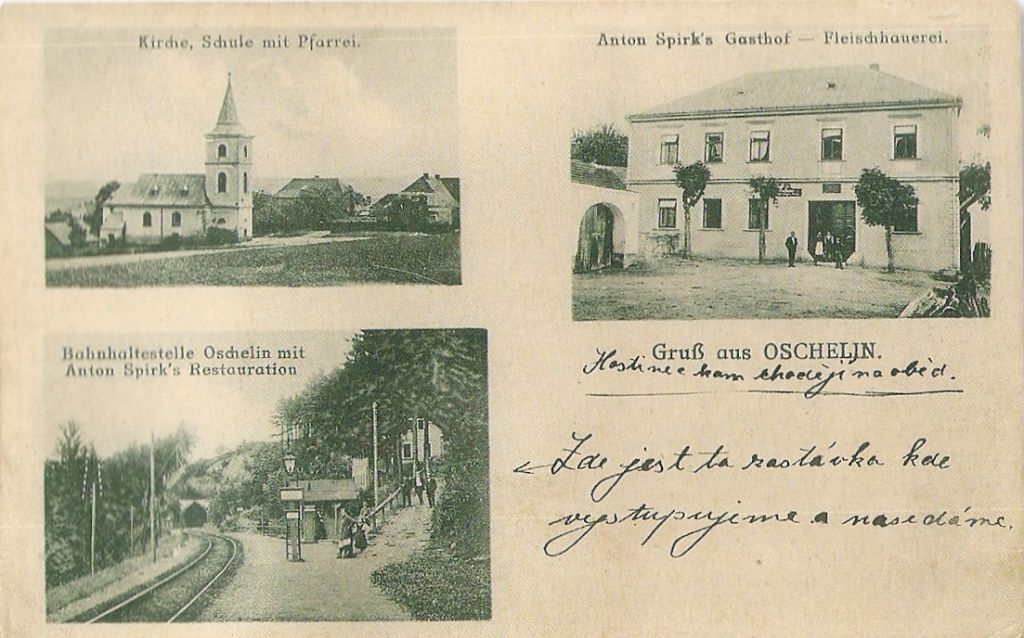 Kirche, Schule mit Pfarrei.
Anton Spirk's Gasthof — Fleischhauerei.
Bahnhaltestelle Oschelin mit
Anton Spirk's Restauration
Gruß aus OSCHELIN.
Hostinec kam chodějí na oběd.
Zde jest ta zastávka kde
vystupujeme a nasedáme.